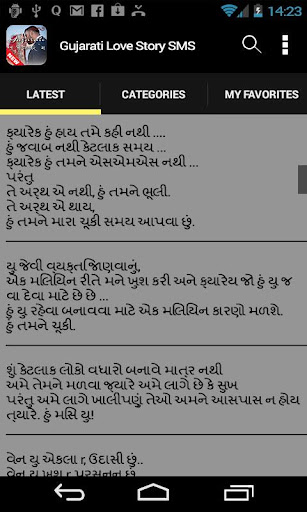 14:23
Gujarati Love Story SMS
LATEST CATEGORIES MY FAVORITES
ક્યારેક હું હાય તમે કહી નથી ....
હું જવાબ નથી કેટલાક સમય ...
ક્યારેક હું તમને એસએમએસ નથી ...
પરંતુ
તે અર્થ એ નથી, હું તમને ભૂલી.
તે અર્થ એ થાય,
હું તમને મારા ચૂકી સમય આપવા છું.
યુ જેવી વ્યક્તિજાણવાનું,
એક મિલિયન રીતે મને ખુશ કરી અને ક્યારેય જો હું યુ જ
વા દેવા માટે છે છે ...
હું યુ રહેવા બનાવવા માટે એક મિલિયન કારણો મળશે.
હું તમને ચૂકી.
શું કેટલાક લોકો વધારો બનાવે માત્ર નથી
અમે તેમને મળવા જ્યારે અમે લાગે છે કે સુખ
પરંતુ અમે લાગે ખાલીપણું તેઓ અમને આસપાસ ન હોય
ત્યારે. હું મિસ યુ!
વેન યુ એકલા r, ઉદાસી છું..
વેન યુ ખુશ r પ્રસન્ન છું